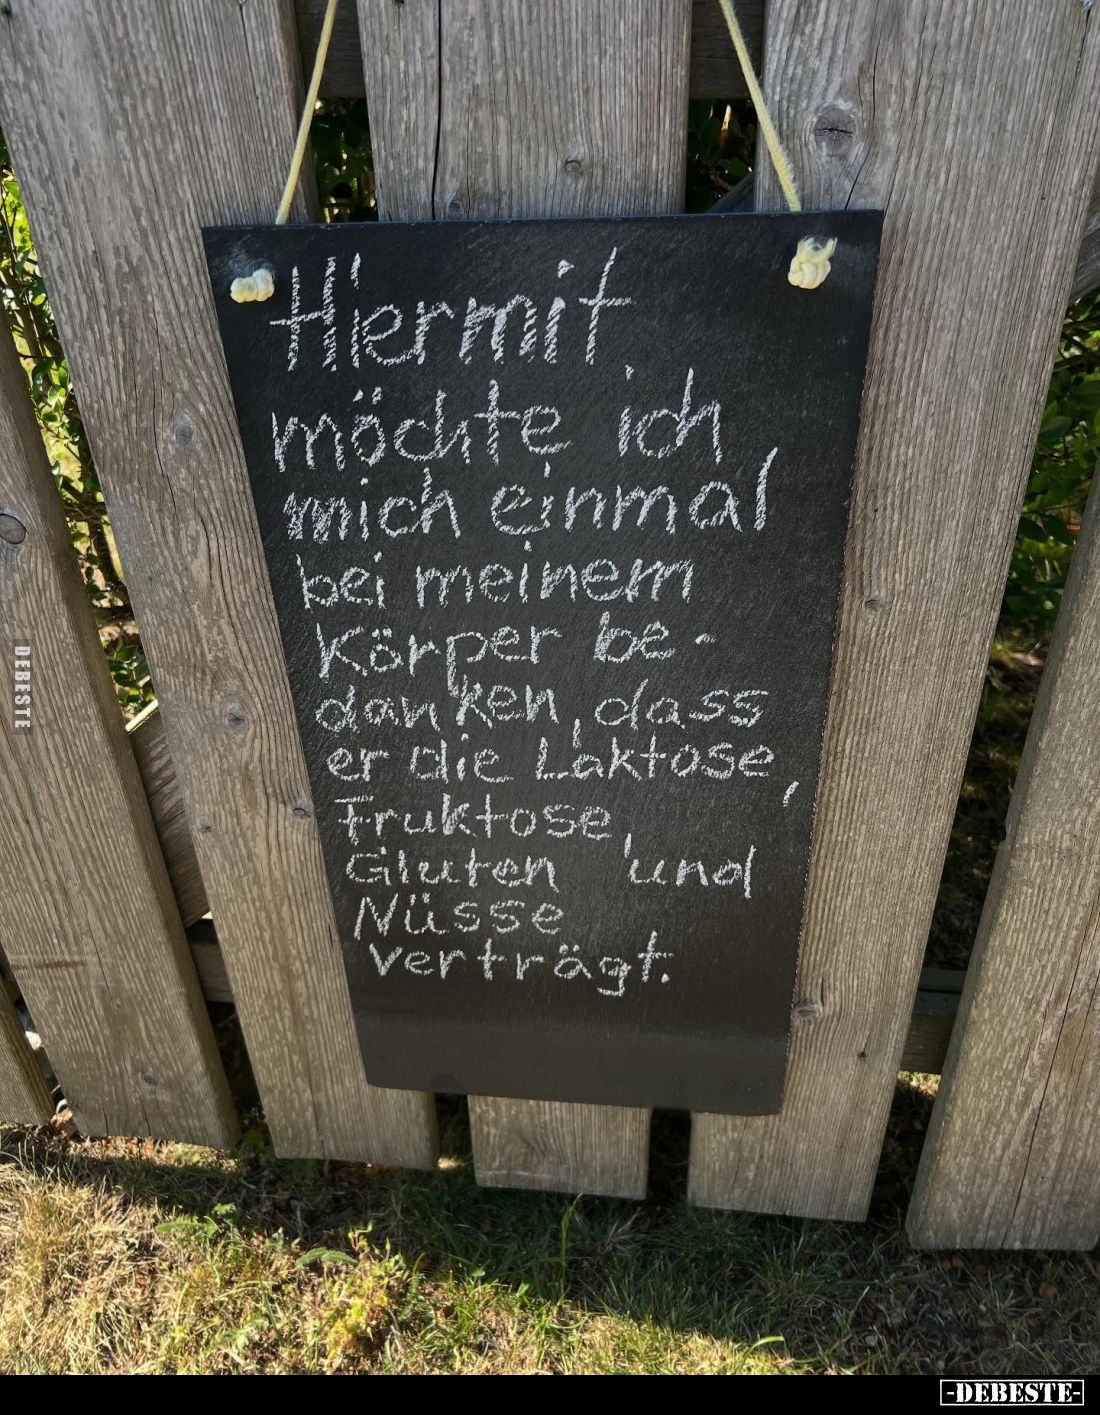 Hiermit
möchte ich
mich einmal
bei meinem
Körper be-
danken, dass
er die Laktose,
Fruktose,
Gluten und
Nüsse
verträgt.
DEBESTE
-DEBESTE-